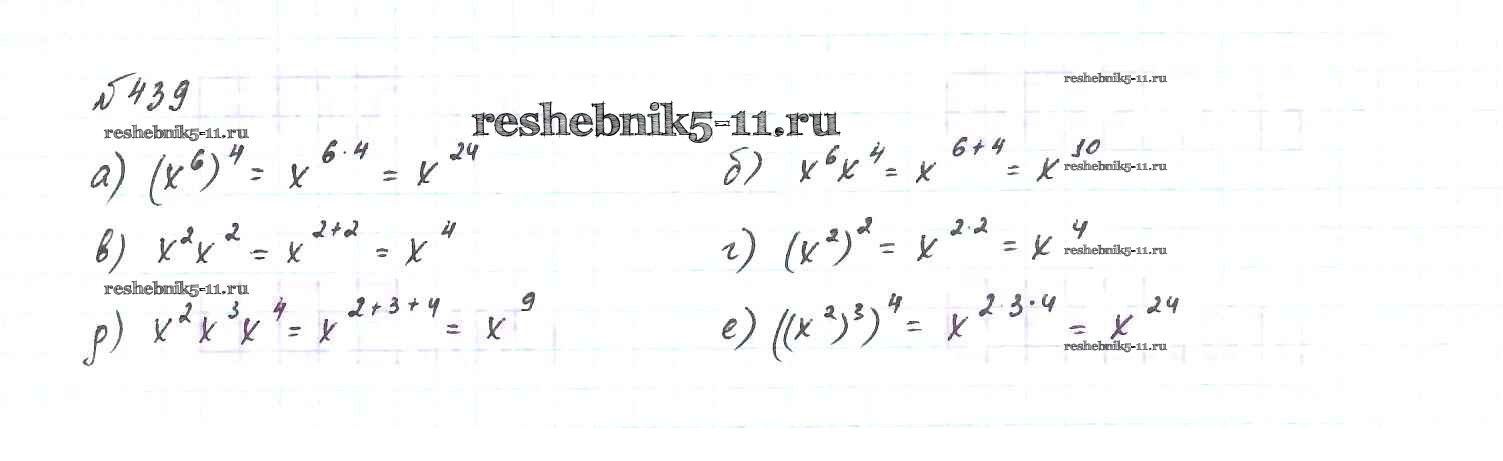 №439
reshebnik5-11.ru
reshebnik5-11.ru
reshebnik5-11.ru
а) (x⁶)⁴ = x⁶·⁴ = x²⁴
б) x⁶x⁴ = x⁶⁺⁴ = x¹⁰
reshebnik5-11.ru
в) x²x² = x²⁺² = x⁴
г) (x²)² = x²·² = x⁴
reshebnik5-11.ru
reshebnik5-11.ru
д) x²x³x⁴ = x²⁺³⁺⁴ = x⁹
е) ((x²)³)⁴ = x²·³·⁴ = x²⁴
reshebnik5-11.ru